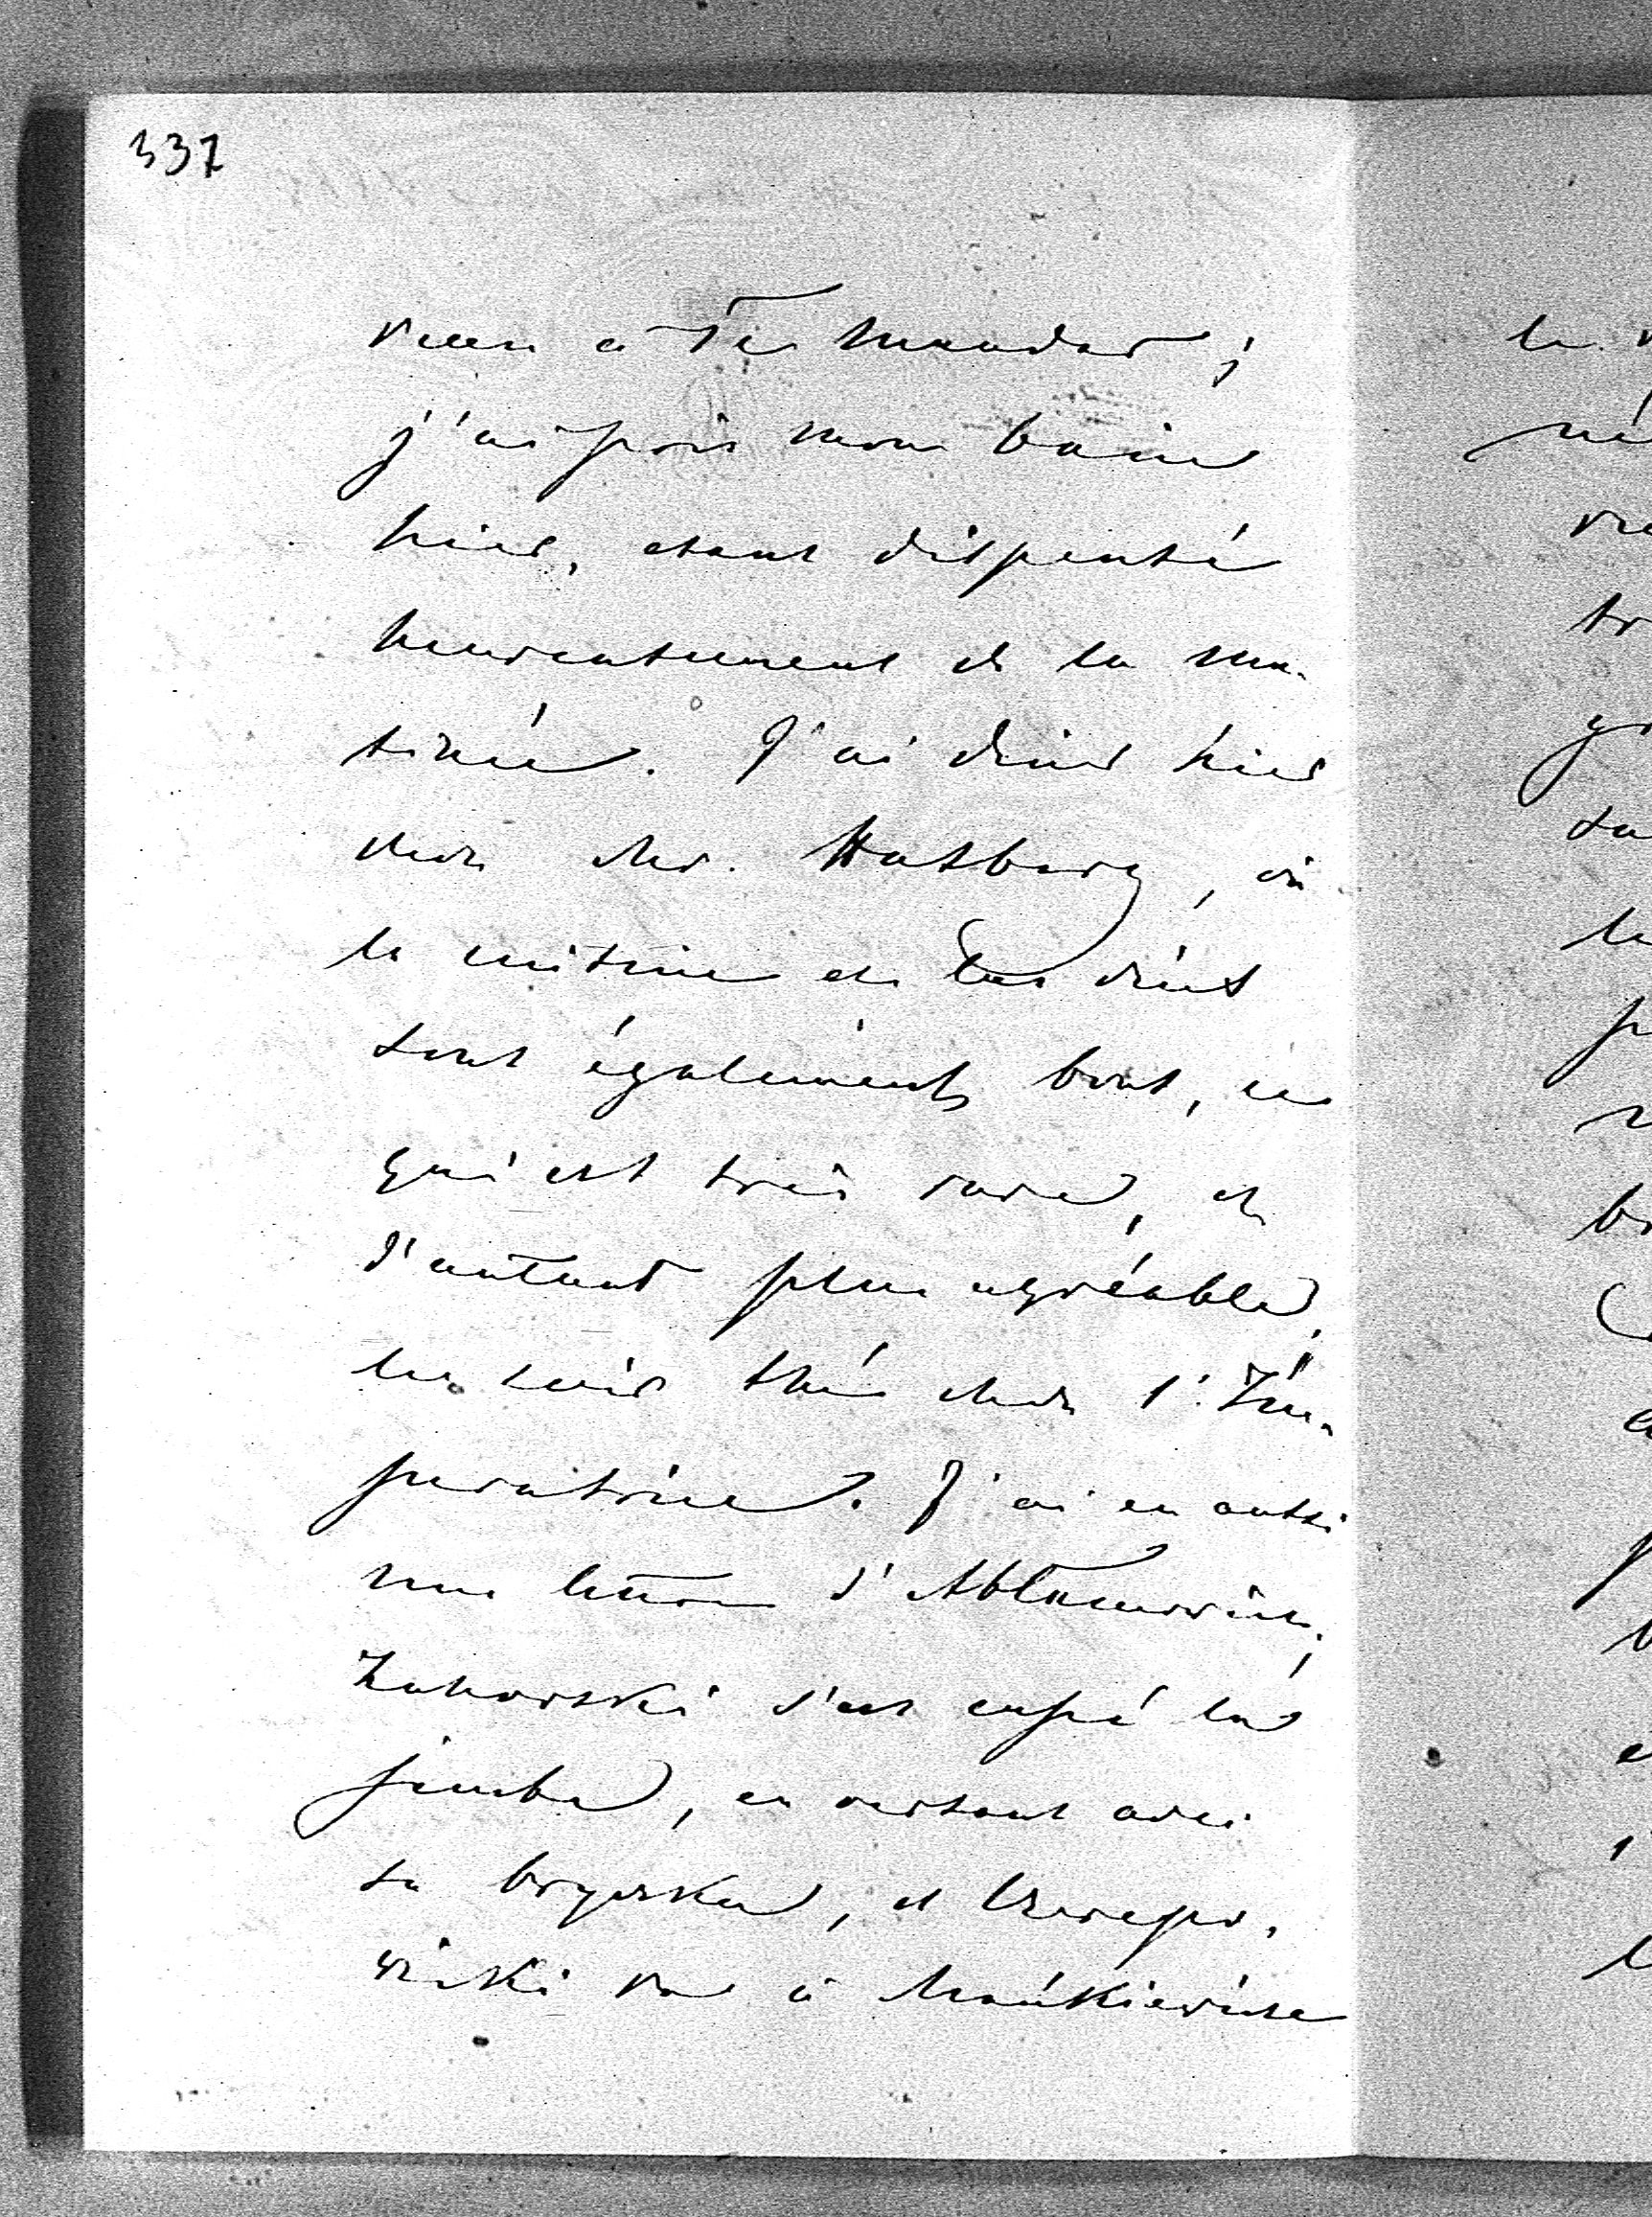 337
rien à Te mander ;
j'ai pris mon bain
hier, etant dispensé
heureusement de la ma-
tinée. J'ai diné hier
chez chr. Hatsburg, où
la cuisine et les vins
sont également bons, ce
qui est très rare, et
d'autant plus agréable,
le soir thé chez l'Im-
peratrice. J'ai eu aussi
une lettre d'Abłamowicz,
Zahorski s'est cassé la
jambe, en versant avec
sa bryczka, et Czerepo-
wicki va à Mańkiewicze